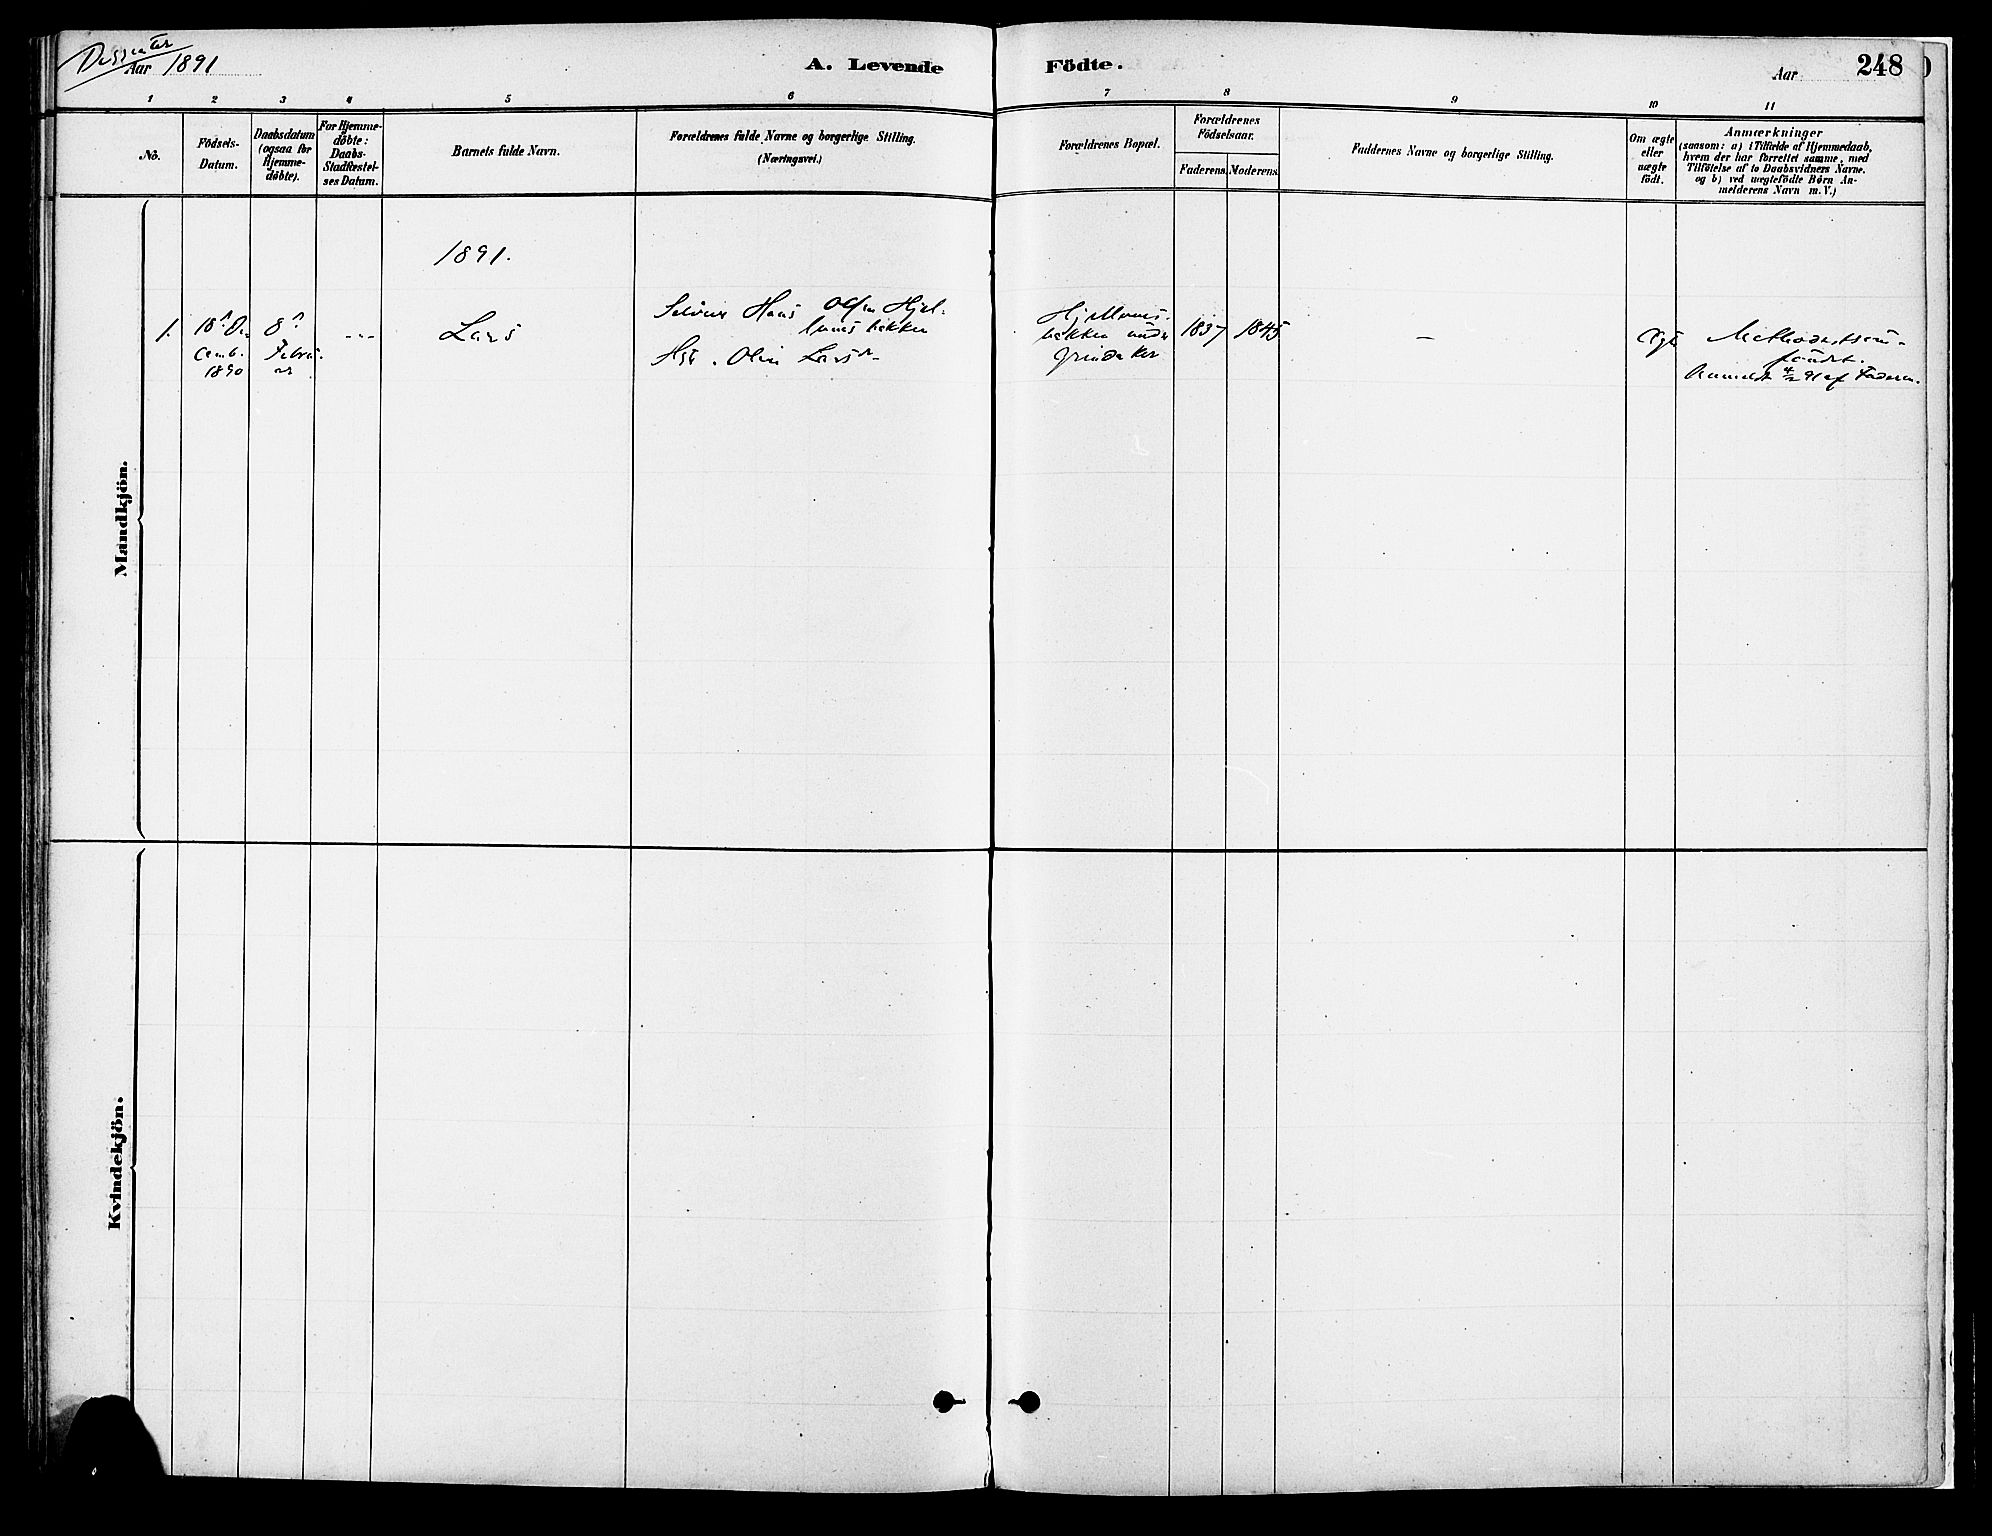 Dissenter
Aar 1891
A. Levende Födte.
Aar
248
1 2 3 4 5 6 7 8 9 10 11
No.
Födsels-
Datum.
Daabsdatum
(ogsaa for
Hjemme-
döbte).
For Hjemme-
döbte:
Daabs-
Stadfæstel-
ses Datum.
Barnets fulde Navn.
Forældrenes fulde Navne og borgerlige Stilling.
(Næringsvei.)
Forældrenes Bopæl.
Forældrenes
Födselsaar.
Faderens. Moderens.
Faddernes Navne og borgerlige Stilling.
Om ægte
eller
uægte
födt.
Anmærkninger
(saasom: a) i Tilfælde af Hjemmedaab,
hvem der har forrettet samme, med
Tilföielse af to Daabsvidners Navne.
og b) ved uægtefödte Börn An-
melderens Navn m. V.)
Mandkjön.
1891.
1.
18 De-
cemb.
1890
8
Febru-
ar
---
Lars
Hans Olsen Hjel-
bekken
Olin Larsd.
bekken under
Grindaker
1837
1845
—
Ægte
Methodistsam-
fundet.
Anmeldt 4/2 91 af Faderen.
Kvindekjön.